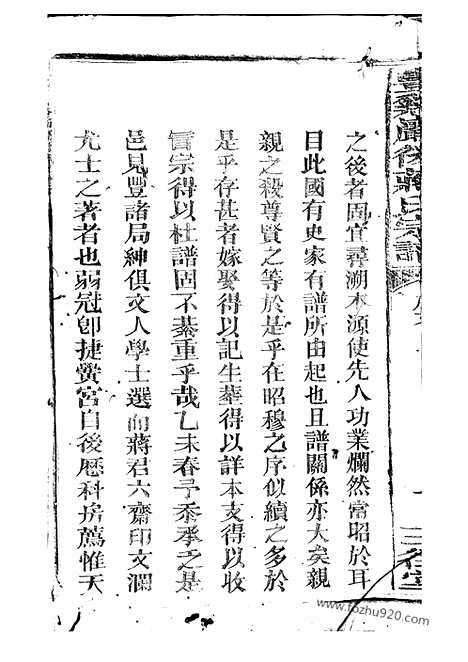 之後者固宜尋溯本源使先人功業爛然常昭於耳
目此國有史家有譜所由起也且譜關係亦大矣親
親之殺尊賢之等於是乎在昭穆之序似續之多於
是乎存甚者嫁娶得以記生塟得以詳本支得以收
冒宗得以杜譜固不綦重乎哉乙未春予忝承乏是
邑見豐諸局紳俱文人學士選而蔣君六齋印文瀾
尤士之著者也弱冠卽捷黌宮自後歷科房薦惟天
蔣氏宗譜
www.fozhu920.com